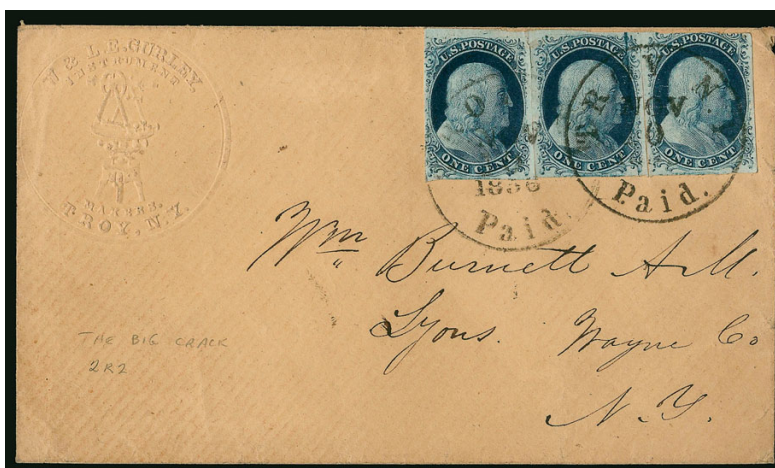 W. & L.E. GURLEY.
INSTRUMENT
MAKERS.
TROY, N.Y.
U.S. POSTAGE
ONE CENT
U.S. POSTAGE
ONE CENT
U.S. POSTAGE
ONE CENT
1856
Paid.
NOV
Paid.
Wm Burnett
Lyons. Wayne Co
N.Y.
THE BIG CRACK
2R2